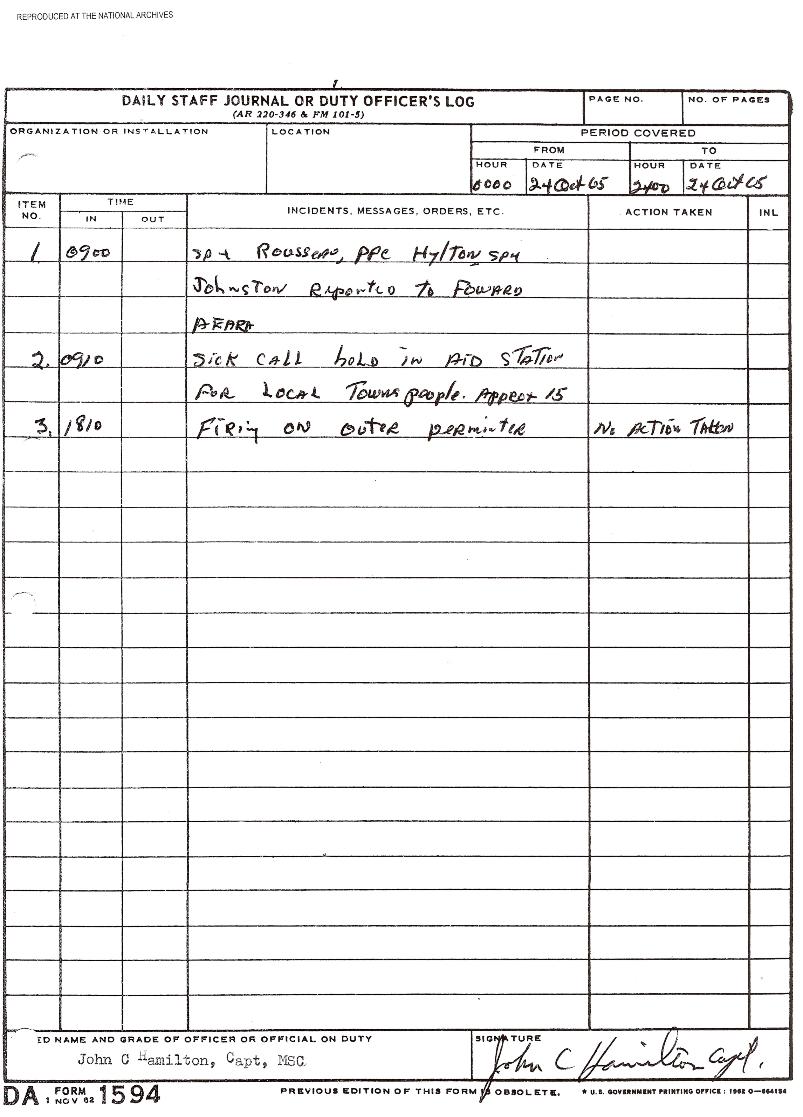 REPRODUCED AT THE NATIONAL ARCHIVES
1
DAILY STAFF JOURNAL OR DUTY OFFICER'S LOG
(AR 220-346 & FM 101-5)
PAGE NO.
NO. OF PAGES
ORGANIZATION OR INSTALLATION
LOCATION
PERIOD COVERED
FROM
TO
HOUR
DATE
HOUR
DATE
0000
24 Oct 65
2400
24 Oct 65
ITEM NO.
TIME
IN
OUT
INCIDENTS, MESSAGES, ORDERS, ETC.
ACTION TAKEN
INL
1 0900 sp4 Rousseau, PFC Hylton sp4
Johnston Reported to Foward
AEARA
2. 0910 SICK CALL hold in AID STATION
FOR LOCAL Towns people. Approx 15
3. 1810 FIRing ON OUTER perminter No ACTION TAKEN
ED NAME AND GRADE OF OFFICER OR OFFICIAL ON DUTY
John C Hamilton, Capt, MSC
SIGNATURE
John C Hamilton Capt.
DA FORM 1 NOV 62 1594
PREVIOUS EDITION OF THIS FORM IS OBSOLETE.
* U.S. GOVERNMENT PRINTING OFFICE : 1962 O—664154